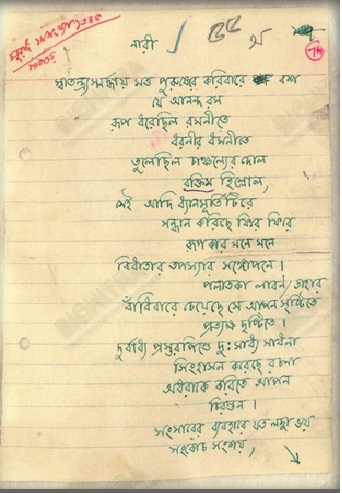 নারী
স্বাতন্ত্র্যস্পর্ধায় মত্ত পুরুষেরে করিবারে বশ
যে আনন্দরস
রূপ ধরেছিল রমণীতে
ধরণীর ধমনীতে
তুলেছিল চাঞ্চল্যের দোল
রক্তিম হিল্লোল,
সেই আদি ধ্যানমূর্তিটিরে
সন্ধান করিছে ফিরে ফিরে
রূপকার মনে মনে
বিধাতার তপস্যার সংগোপনে।
পলাতকা লাবণ্য তাহার
বাঁধিবারে চেয়েছে সে আপন সৃষ্টিতে
প্রত্যক্ষ দৃষ্টিতে।
দুর্বাধ্য প্রস্তরপিণ্ডে দুঃসাধ্য সাধনা
সিংহাসন করেছে রচনা
অধরাকে করিতে আপন
চিরন্তন।
সংসারের ব্যবহারে যত লজ্জা ভয়
সংকোচ সংশয়,